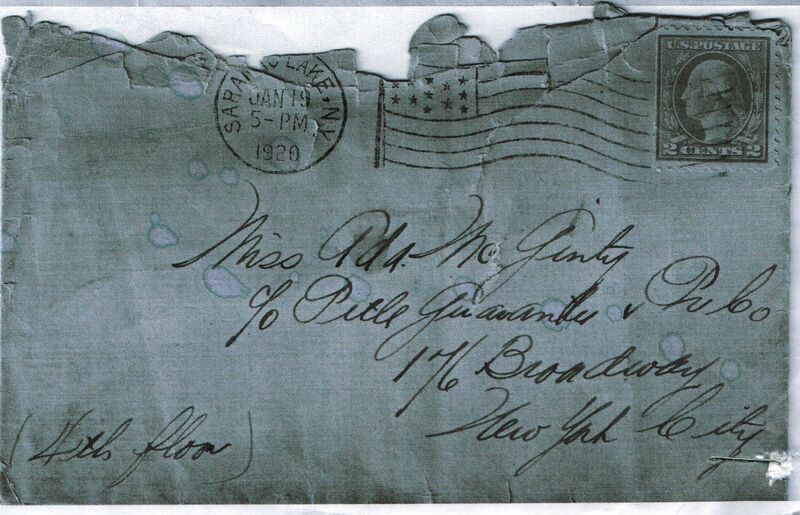 SARANAC LAKE, N.Y.
JAN 19
5-PM
1920
U.S. POSTAGE
2 CENTS 2
Miss Ada Mc Ginty
c/o Title Guarantee & Tr Co
176 Broadway
New York City
(4th floor)